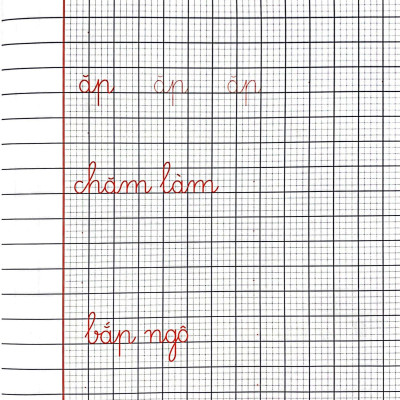 ăp ăp ăp
chăm làm
bắp ngô